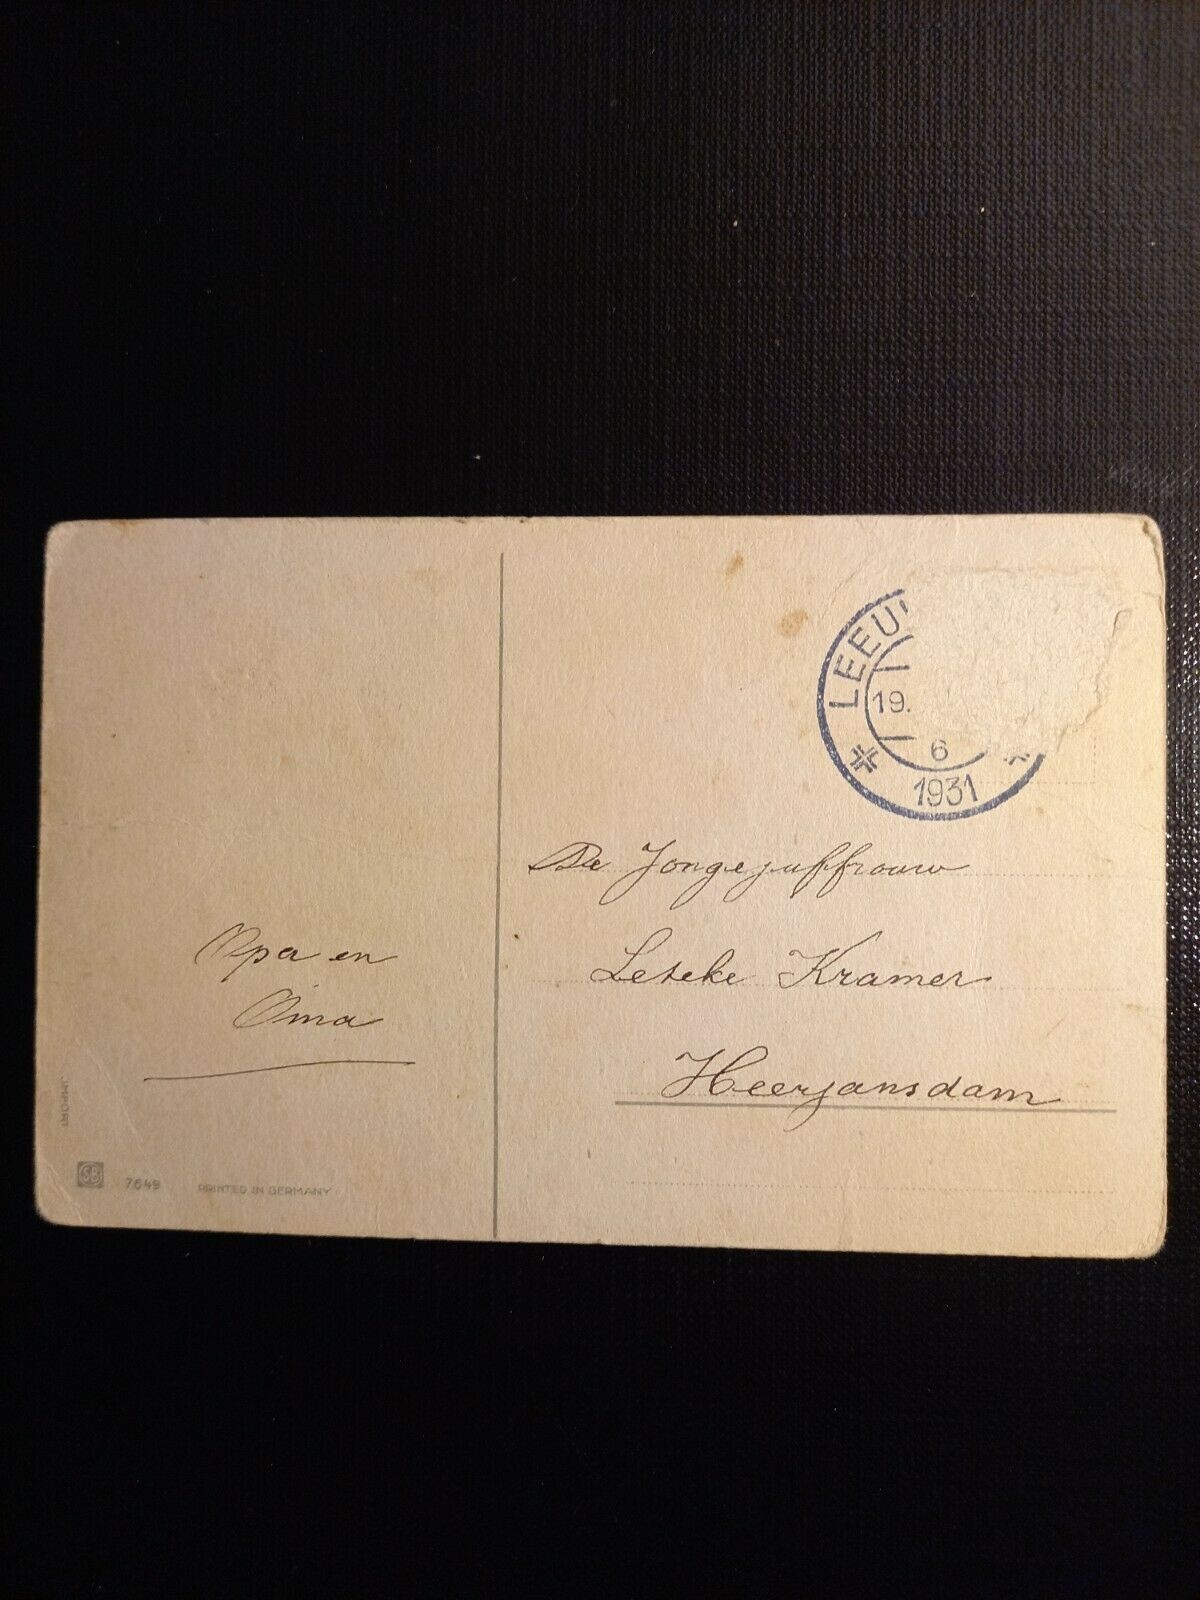 LEEU
19.
6
1931
De Jongejuffrouw
Leseke Kramer
Heerjansdam
Opa en
Oma
IMPORT
SB 7649 PRINTED IN GERMANY